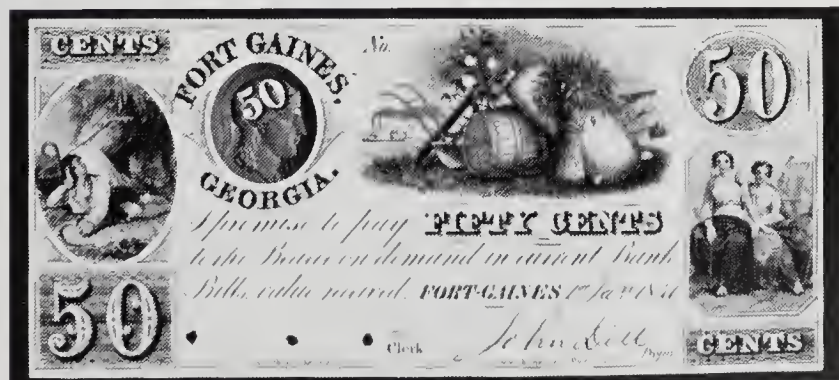 CENTS
FORT GAINES,
50
GEORGIA.
No.
50
I promise to pay FIFTY CENTS
to the Bearer on demand in current Bank
Bills, value received. FORT-GAINES 1st Jany
50
Clerk
John Dill
CENTS